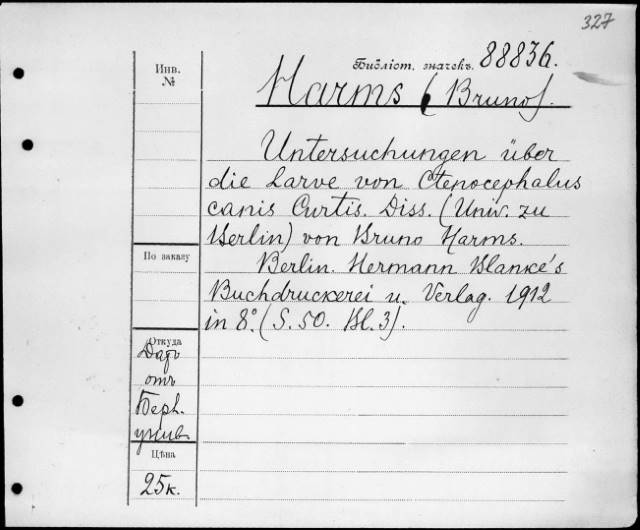 327
Библіот. значекъ. 88836.
Инв.
№
Harms (Bruno).
Untersuchungen über
die Larve von Ctenocephalus
canis Curtis. Diss. (Univ. zu
Berlin) von Bruno Harms.
Berlin. Hermann Blanke's
Buchdruckerei u. Verlag. 1912
in 8°. (S. 50. Bl. 3).
По заказу
Откуда
Даръ
отъ
Берл.
унив.
Цѣна
25к.